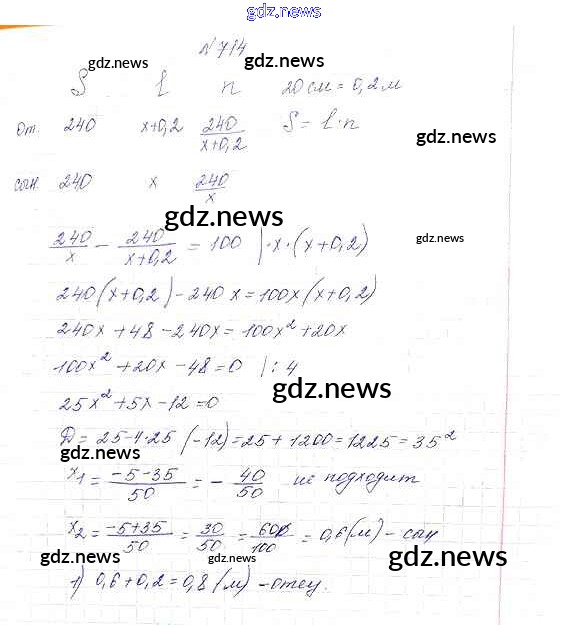 gdz.news
N 714
gdz.news gdz.news
S l n 20 см = 0,2 м
от. 240 x+0,2 240/(x+0,2) S = l·n
gdz.news
сын. 240 x 240/x
gdz.news
240/x − 240/(x+0,2) = 100 | ·x·(x+0,2)
gdz.news
240(x+0,2) − 240x = 100x(x+0,2)
240x + 48 − 240x = 100x² + 20x
100x² + 20x − 48 = 0 | : 4
gdz.news
25x² + 5x − 12 = 0
D = 25−4·25·(−12) = 25 + 1200 = 1225 = 35²
gdz.news
x₁ = (−5−35)/50 = − 40/50 не подходит
x₂ = (−5+35)/50 = 30/50 = 60/100 = 0,6 (м) − сын
gdz.news gdz.news gdz.news
1) 0,6 + 0,2 = 0,8 (м) − отец.